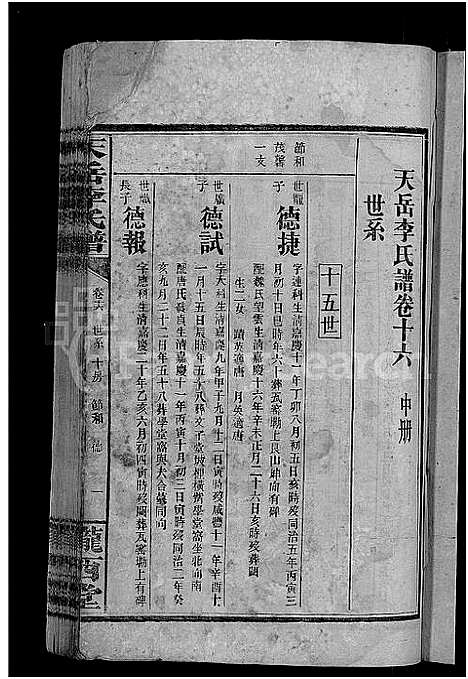 天岳李氏譜卷十六 中册
世系
十五世
節和
茂馨
一支
世龍
子
德捷
字連科生清嘉慶十一年丁卯八月初五日亥時歿同治五年丙寅三
月初十日巳時年六十葬瓦窰塅上艮山
配魏氏望雲生清嘉慶十六年辛未正月二十六日亥時歿葬闕
生二女 適唐 月英適唐
世
子
德試
字大科生清嘉慶九年甲子九月十二日寅時歿咸豐十一年辛酉
一月十五日辰時年五十八葬文子
配唐氏
生清嘉慶十一年丙寅十月初三日寅時歿同治二年癸
亥九月二十二日年五十八葬學堂
世
長子
德報
字應科生清嘉慶二十年乙亥六月初四寅時歿闕葬瓦窰塅上有碑
天岳李氏譜
卷十六 世系 十五房 節和 德 一
隴西堂